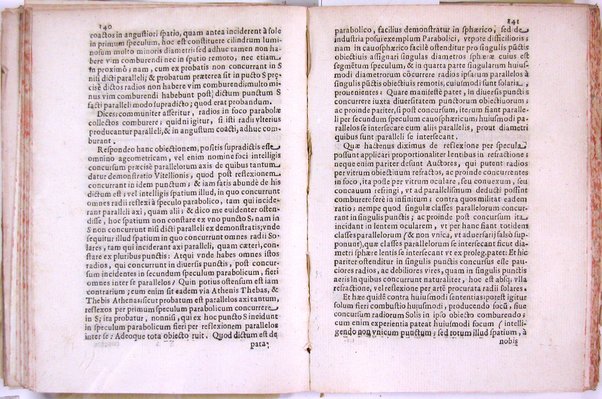 140
coactos in angustiori spatio, quam antea inciderent à sole
in primum speculum, hoc est constituere cilindrum lumi-
nosum molto minoris diametri: sed adhuc tamen non ha-
bere vim comburendi nec in spatio remoto, nec etiam
in proximo; nam, cum ex probatis non concurrant in S
nisi dicti paralleli; & probatum præterea sit in pucto S præ-
cisè dictos radios non habere vim comburendi, multo mi-
nus vim comburendi habebunt post dictum punctum S
facti paralleli modo supradicto; quod erat probandum.
Dices: communiter asseritur, radios in foco parabolæ
collectos comburere: quid ni igitur, si isti radij vlterius
producantur paralleli, & in angustum coacti, adhuc com-
burant.
Respondeo hanc obiectionem, positis supradictis esse
omnino ageometricam; vel enim nomine foci intelligis
concursum præcisè parallelorum axis de quibus tantum
datur demonstratio Vitellionis, quod post reflexionem
concurrant in idem punctum; & iam satis abundè de his
dictum est; vel intelligis spatium illud, in quo concurrunt
omnes radij reflexi à speculo parabolico, tam qui incide-
rant paralleli axi, quam alij: & dico me euidenter osten-
disse, hoc spatium non constare ex vno puncto S, nam in
S non concurrunt nisi dicti paralleli ex demonstratis; vnde
sequitur illud spatium in quo concurrunt omnes radij So-
lares, tam qui inciderant axi paralleli, quam cæteri, consta-
re ex pluribus punctis: Atqui vnde habes omnes istos
radios, qui concurrunt in diuersis punctis, post concur-
sum incidentes in secundum speculum parabolicum, fieri
omnes inter se parallelos? Quin potius ostensum est iam
contrarium; cum enim sit eadem via Athenis Thebas, &
Thebis Athenas: sicut probatum est parallelos axi tantum,
reflexos per primum speculum parabolicum concurrere
in S; ita probatur, nonnisi, qui ex hoc puncto S incidunt
in speculum parabolicum fieri per reflexionem parallelos
inter se: Adeoque tota obiectio ruit. Quod dictum est de
para-
141
parabolico, facilius demonstratur in sphærico, sed de
industria posui exemplum Parabolici, vtpote difficilioris:
nam in cauosphærico facilè ostenditur pro singulis pūctis
obiectiuis assignari singulas diametros sphæræ cuius est
segmētum speculum, & in quarta parte singularum huius-
modi diametrorum cōcurrere radios ipsarum paralelos à
singulis pūctis obiectiuis remotis, cuiusmodi sunt solaria,
prouenientes: Quare manifestè patet, in diuersis punctis
concurrere iuxta diuersitatem punctorum obiectiuorum;
ac proinde pariter, si post concursum, iterum fiant paralle-
li per secundum speculum cauosphæricum; huiusmodi
parallelos se intersecare cum alijs parallelis, prout diametri
quibus sunt paralleli se intersecant.
Quæ hactenus diximus de reflexione per specula
possunt applicari proportionaliter lentibus in refractione:
nam eodem errore pariter decipiuntur Auctores, qui putent radios
per vitrum obiectiuum refractos, ac proinde concurrentes
in foco, ita posse per vitrum oculare, seu conuexum, seu
concauum, refringi, vt ad parallelissimum deducti possint
comburere ferè in infinitum: contra quos militat eadem
ratio: nempe quod singulæ classes parallelorum concur-
rant in singulis punctis; ac proinde post concursum ita
incidant in lentem ocularem, vt per hanc fiant totidem
classes parallelorum (& non vnica, vt aduersarij falsò sup-
ponunt) quæ classes parallelorum se intersecant sicut di-
metri sphæræ lentis se intersecant vt ex proleg. patet: Ex hic
pariter ostenditur in singulis punctis concursus esse pau-
ciores radios, ac deinceps viribus, quam in singulis punctis
neris in quibus concurrant naturaliter, hoc est absq; vlla
refractione, vel reflexione per artē procurata radij solares.
Et hæc quidē contra huiusmodi sententias: potest igitur
solum fieri combustio huiusmodi, producendo focū, seu
concursum radiorum Solis in ipso obiecto comburendo;
cum enim experientia pateat huiusmodi focum (intelli-
gendo non vnicum punctum; sed totum illud spatium, à
nobis